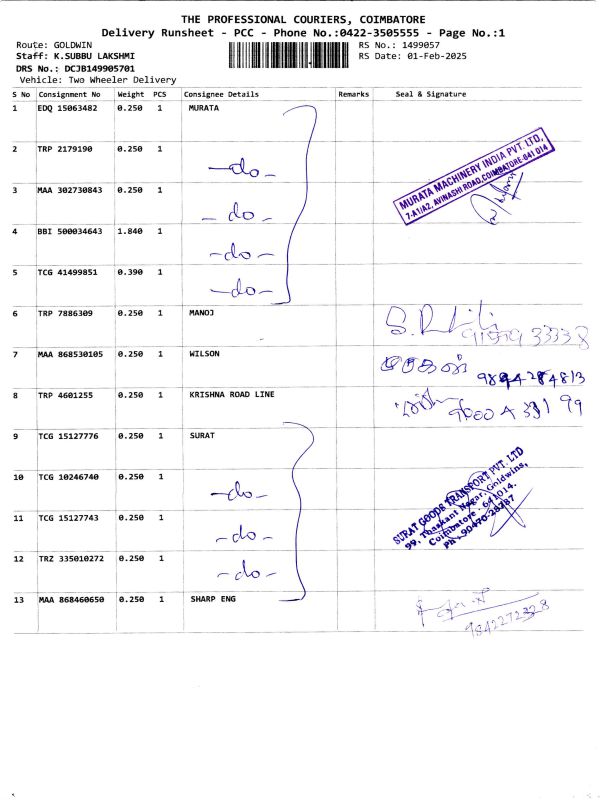 THE PROFESSIONAL COURIERS, COIMBATORE
Delivery Runsheet - PCC - Phone No.:0422-3505555 - Page No.:1
Route: GOLDWIN RS No.: 1499057
Staff: K.SUBBU LAKSHMI RS Date: 01-Feb-2025
DRS No.: DCJB149905701
Vehicle: Two Wheeler Delivery
S No Consignment No Weight PCS Consignee Details Remarks Seal & Signature
1 EDQ 15063482 0.250 1 MURATA
2 TRP 2179190 0.250 1
-do-
MURATA MACHINERY INDIA PVT. LTD,
7-A1/A2, AVINASHI ROAD, COIMBATORE-641 014
3 MAA 302730843 0.250 1
-do-
4 BBI 500034643 1.840 1
-do-
5 TCG 41499851 0.390 1
-do-
6 TRP 7886309 0.250 1 MANOJ
7 MAA 868530105 0.250 1 WILSON
8 TRP 4601255 0.250 1 KRISHNA ROAD LINE
9 TCG 15127776 0.250 1 SURAT
10 TCG 10246740 0.250 1
-do-
SURAT GOODS TRANSPORT PVT. LTD
99, Nagar, Goldwins,
Coimbatore - 641014.
11 TCG 15127743 0.250 1
-do-
12 TRZ 335010272 0.250 1
-do-
13 MAA 868460650 0.250 1 SHARP ENG
9842272328